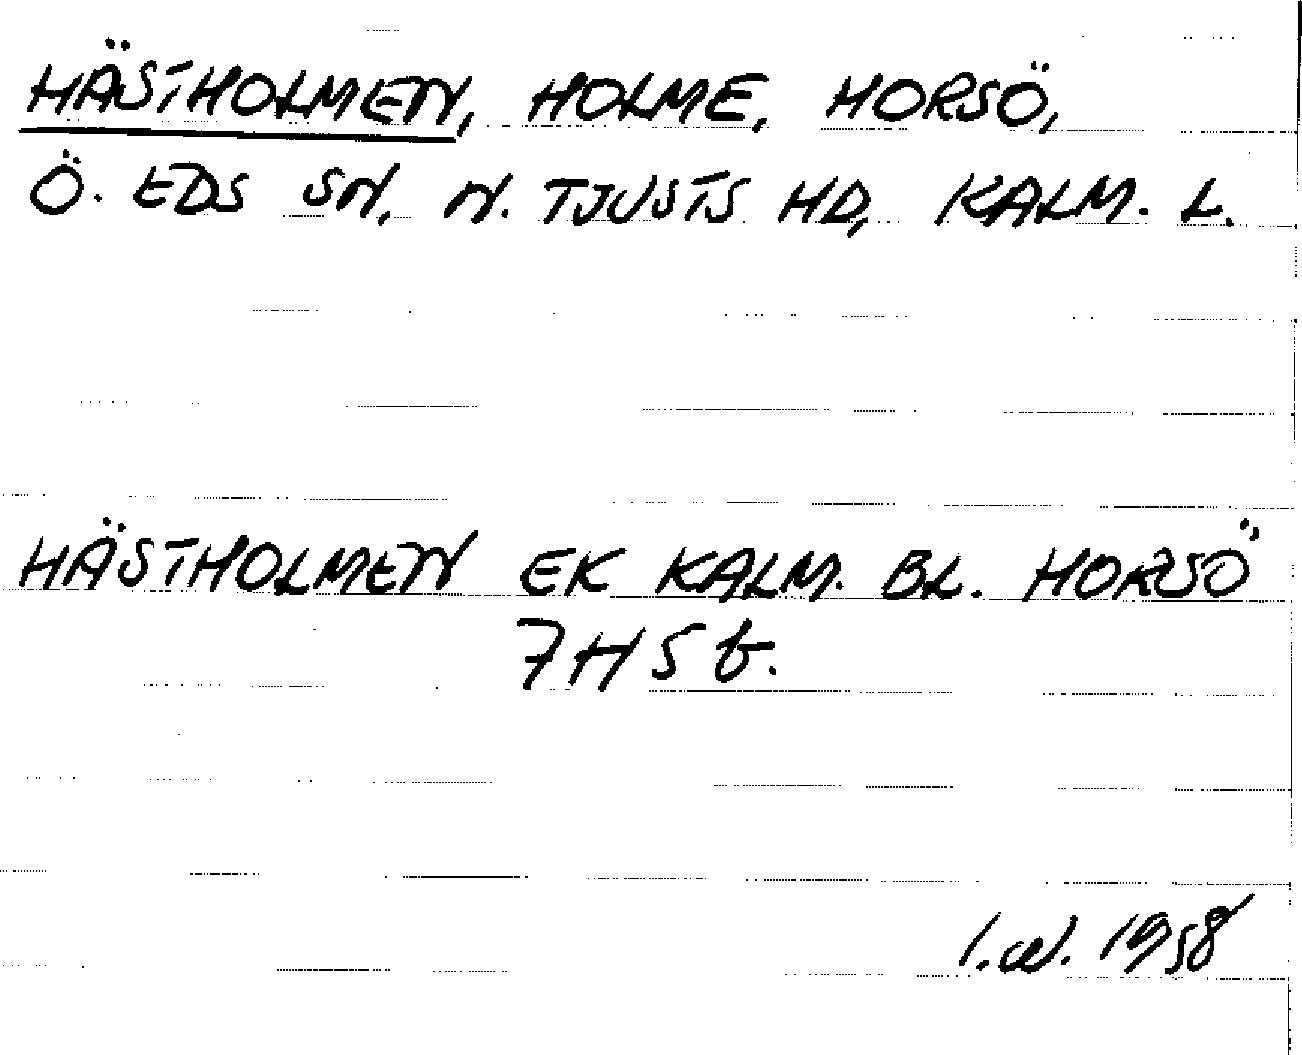 HÄSTHOLMEN, HOLME, HORSÖ,
Ö. EDS SN, N. TJUSTS HD, KALM. L.
HÄSTHOLMEN EK KALM. BL. HORSÖ
7H5b.
1958